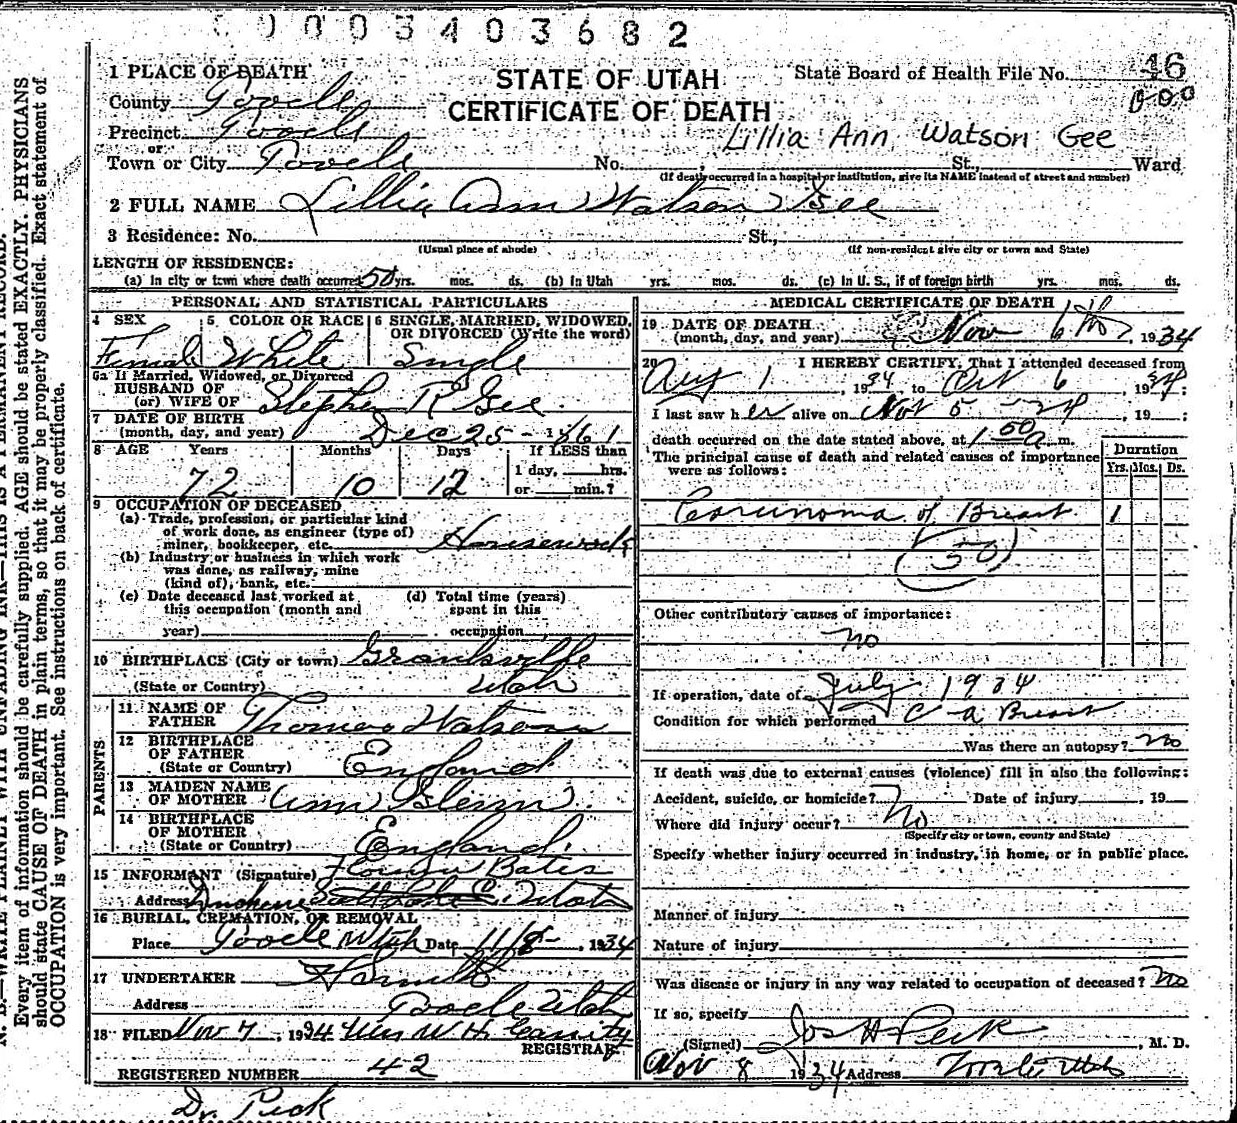 0003403682
1 PLACE OF DEATH
STATE OF UTAH
CERTIFICATE OF DEATH
State Board of Health File No. 46
County Tooele
Precinct Tooele
or
Town or City Tooele No. St., Ward
Lillia Ann Watson Gee
(If death occurred in a hospital or institution, give its NAME instead of street and number)
2 FULL NAME Lillia Ann Watson Gee
3 Residence: No. St.,
(Usual place of abode) (If non-resident give city or town and State)
LENGTH OF RESIDENCE:
(a) In city or town where death occurred 50 yrs. mos. ds. (b) In Utah yrs. mos. ds. (c) In U. S., if of foreign birth yrs. mos. ds.
PERSONAL AND STATISTICAL PARTICULARS
4 SEX
Female
5 COLOR OR RACE
White
6 SINGLE, MARRIED, WIDOWED, OR DIVORCED (Write the word)
Single
6a If Married, Widowed, or Divorced
HUSBAND OF
(or) WIFE OF Stephen R Gee
7 DATE OF BIRTH
(month, day, and year) Dec 25 - 1861
8 AGE Years Months Days If LESS than
72 10 12 1 day, hrs.
or min.?
9 OCCUPATION OF DECEASED
(a) Trade, profession, or particular kind
of work done, as engineer (type of)
miner, bookkeeper, etc. Housework
(b) Industry or business in which work
was done, as railway, mine
(kind of), bank, etc.
(c) Date deceased last worked at
this occupation (month and
year)
(d) Total time (years)
spent in this
occupation
10 BIRTHPLACE (City or town) Grantsville
(State or Country) Utah
PARENTS
11 NAME OF
FATHER Thomas Watson
12 BIRTHPLACE
OF FATHER
(State or Country) England
13 MAIDEN NAME
OF MOTHER Ann Glenn
14 BIRTHPLACE
OF MOTHER
(State or Country) England
15 INFORMANT (Signature) Bates
Address Duchesne Utah
16 BURIAL, CREMATION, OR REMOVAL
Place Tooele Utah Date 11/8 - , 1934
17 UNDERTAKER
Address Tooele Utah
18 FILED Nov 7, 1934 W. H. Cassity
REGISTRAR
REGISTERED NUMBER 42
Dr. Peck
MEDICAL CERTIFICATE OF DEATH
19 DATE OF DEATH
(month, day, and year) Nov 6th, 1934
20 I HEREBY CERTIFY, That I attended deceased from
Aug 1, 1934 to Oct 6, 1934;
I last saw her alive on Nov 5 - 34, 19 ;
death occurred on the date stated above, at 1 50 a m.
The principal cause of death and related causes of importance
were as follows:
Duration
Yrs. Mos. Ds.
Carcinoma of Breast 1
(50)
Other contributory causes of importance:
No
If operation, date of July 1934
Condition for which performed C-a Breast
Was there an autopsy? No
If death was due to external causes (violence) fill in also the following:
Accident, suicide, or homicide? Date of injury , 19
Where did injury occur? No
(Specify city or town, county and State)
Specify whether injury occurred in industry, in home, or in public place.
Manner of injury
Nature of injury
Was disease or injury in any way related to occupation of deceased? No
If so, specify
(Signed) Jos H Peck, M. D.
Nov 8 1934 Address Tooele Utah
N. B.—WRITE PLAINLY WITH UNFADING INK—THIS IS A PERMANENT RECORD.
Every item of information should be carefully supplied. AGE should be stated EXACTLY. PHYSICIANS
should state CAUSE OF DEATH in plain terms, so that it may be properly classified. Exact statement of
OCCUPATION is very important. See instructions on back of certificate.